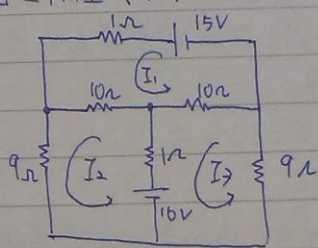 1Ω 15V
I₁
10Ω 10Ω
9Ω I₂ 1Ω I₃ 9Ω
10V